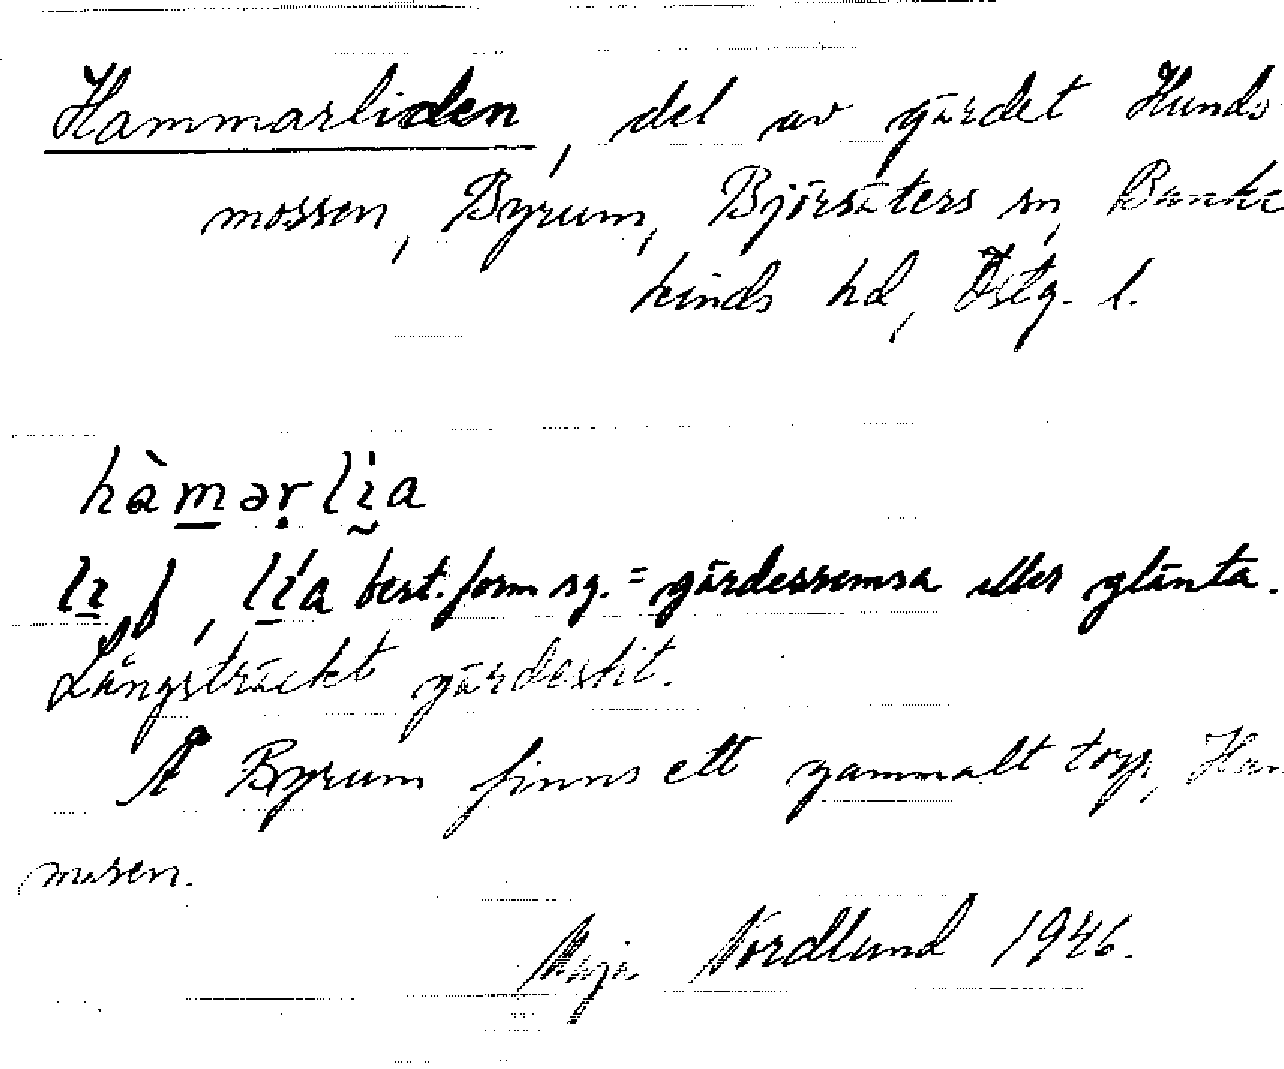 Hammarliden, del av gärdet Hunds
mossen, Byrum, Björsäters sn, Banke
kinds hd, Östg. l.
hàmərlı̀a
lı f, lı́a best. form sg. = gärdesremsa eller glänta.
Långsträckt gärdesbit.
Å Byrum finns ett gammalt torp, Ham
maren.
Maja Nordlund 1946.